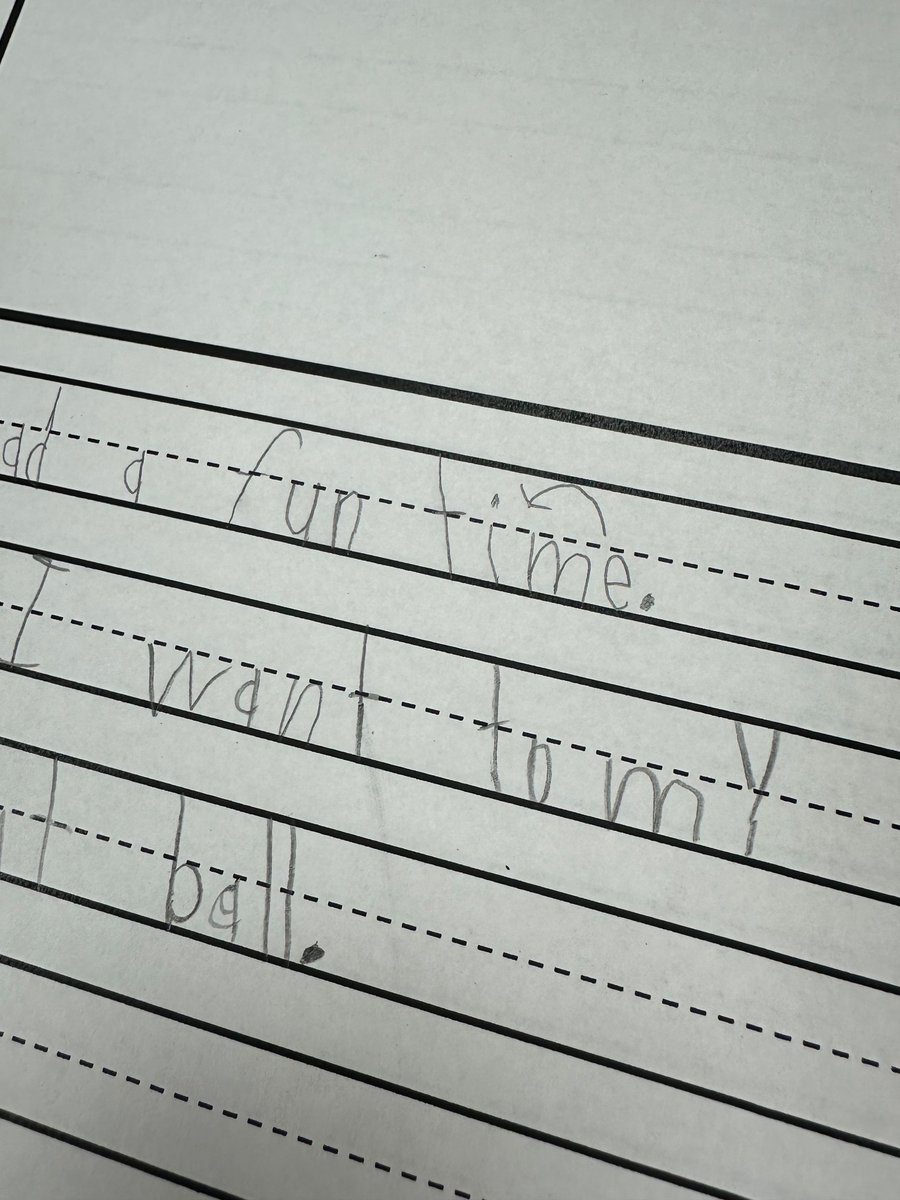 a fun time.
I want to my
ball.